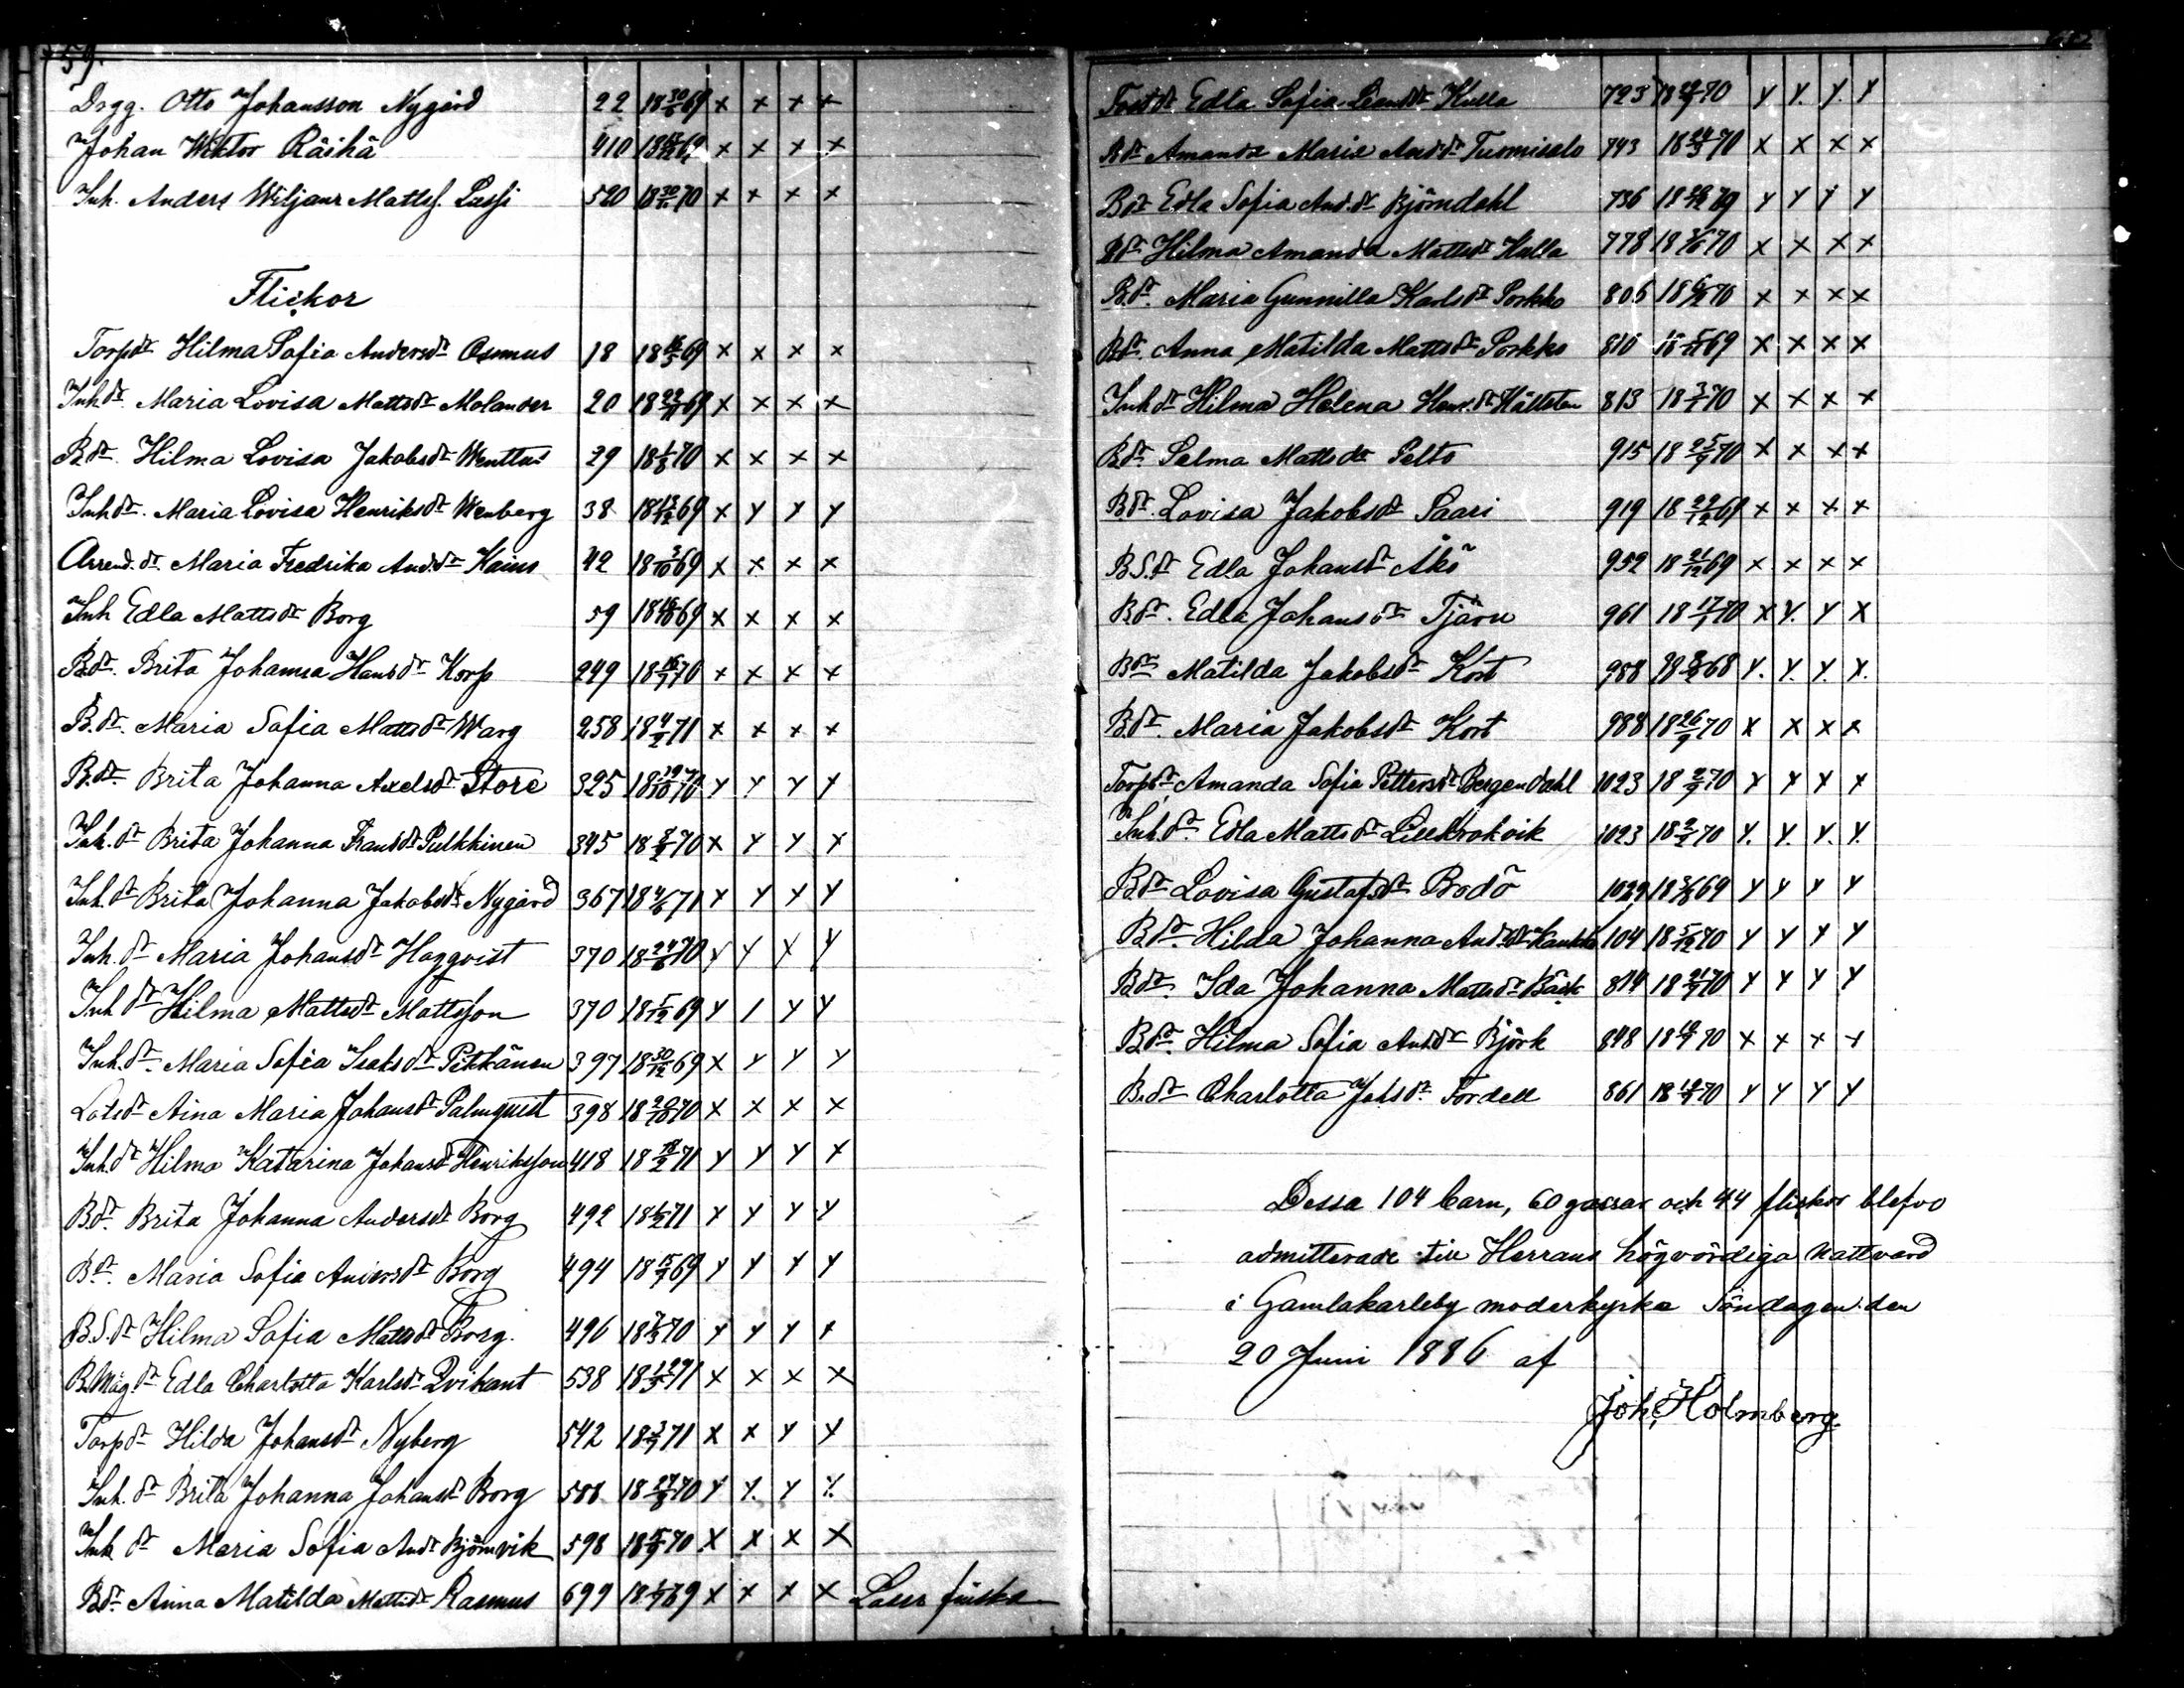 59.
Drgg. Otto Johansson Nygård 22 18 30/6 69 x x x x
Johan Wiktor Räihä 410 18 69 x x x x
Inh. Anders Wiljam Mattss. Lassi 520 18 70 x x x x
Flickor
Torpdr Hilma Sofia Andersdr Osmus 18 18 69 x x x x
Inh dr. Maria Lovisa Mattsdr Molander 20 18 69 x x x x
Bdr. Hilma Lovisa Jakobsdr Wenttus 29 18 1/8 70 x x x x
Inhdr. Maria Lovisa Henriksdr Wenberg 38 18 13/12 69 x y y y
Arrend. dr. Maria Fredrika And.dr Kains 42 18 3/10 69 x x x x
Inh Edla Mattsdr Borg 59 18 69 x x x x
Bdr. Brita Johanna Hansdr Korp 249 18 16/7 70 x x x x
B.dr. Maria Sofia Mattsdr Warg 258 18 4/2 71 x x x x
B.dr. Brita Johanna Axelsdr Store 325 18 70 y y y y
Inh. dr Brita Johanna Fransdr Pulkkinen 345 18 70 x y y x
Inh. dr Brita Johanna Jakobsdr Nygård 367 18 4/6 71 x y y y
Inh. dr Maria Johansdr Hagqvist 370 18 24/6 70 y y x y
Inh dr Hilma Mattsdr Mattsson 370 18 5/12 69 y 1 y y
Inh. dr Maria Sofia Isaksdr Pitkänen 397 18 30/12 69 x y y y
Lotsdr Aina Maria Johansdr Palmquist 398 18 20/10 70 x x x x
Inh. dr Hilma Katarina Johansdr Henriksson 418 18 18/2 71 y y y x
B.dr. Brita Johanna Andersdr Borg 492 18 71 y y y y
B.dr. Maria Sofia Andersdr Borg 494 18 69 y y y y
B.S.dr Hilma Sofia Mattsdr Borg. 496 18 70 y y y x
B.Måg. dr Edla Charlotta Karlsdr Qvikant 538 18 71 x x x x
Torpdr Hilda Johansdr Nyberg 542 18 71 x x y y
Inh. dr Brita Johanna Johansdr Borg 588 18 70 y y. y y.
Inh dr Maria Sofia And.dr Björnvik 598 18 70 x x x x
Bdr. Anna Matilda Mattsdr Rasmus 699 18 69 x x x x Läser finska
dr Edla Sofia Leand.dr Kulla 723 18 70 y y. y. y
Bdr Amanda Maria And.dr Tuomisalo 743 18 24/3 70 x x x x
Bdr Edla Sofia And.dr Björndahl 736 18 y y y y
Bdr Hilma Amanda Mattsdr Kulla 778 18 70 x x x x
B.dr. Maria Gunnilla Karlsdr Porkko 806 18 70 x x x x
Bdr. Anna Matilda Mattsdr Porkko 810 18 69 x x x x
Inh dr Hilma Helena Henr.dr Hällsten 813 18 70 x x x x
Bdr. Selma Mattsdr Pelto 915 18 25/9 70 x x x x
Bdr. Lovisa Jakobsdr Saari 919 18 22/12 69 x x x x
B.S.dr Edla Johansdr Åkö 952 18 21/12 69 x x x x
Bdr. Edla Johansdr Tjäru 961 18 70 x y. y x
Bdr Matilda Jakobsdr Kort 988 18 68 y. y. y. x.
B.dr. Maria Jakobsdr Kort 988 18 26/9 70 x x x x
Torpdr Amanda Sofia Pettersdr Bergendahl 1023 18 2/9 70 y y y x
Inh. dr. Edla Mattsdr Lillkrokvik 1023 18 70 y. y. y. y.
Bdr Lovisa Gustafsdr Bodö 1029 18 69 y y y y
Bdr. Hilda Johanna And.dr Kankko 104 18 5/12 70 y y y y
Bdr. Ida Johanna Mattsdr Bäck 814 18 70 y y y y
Bdr. Hilma Sofia And.dr Björk 848 18 70 x x x x
B.dr Charlotta Johsdr. Fordell 861 18 70 y y y y
Dessa 104 barn, 60 gossar och 44 flickor blefvo
admitterade till Herrans högvördiga nattvard
i Gamlakarleby moderkyrka Söndagen den
20 Juni 1886 af
Joh. Holmberg.